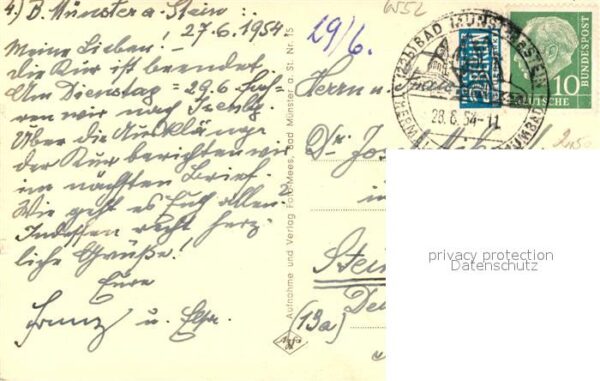 4.) B. Münster a. Stein :.
27.6.1954.
Meine Lieben!
die Kur ist beendet
Am Dienstag = 29.6 fah-
ren wir nach
Über die Ausklänge
der Kur berichten wir
im nächsten Brief.
Wie geht es Euch allen?
Indessen recht herz-
liche Grüße!
Eure
Franz u.
29/6.
W52
Herrn u.
Dr. Jos
in
Stein
(13a)
Aufnahme und Verlag Foto-Mees, Bad Münster a. St. Nr. 15
BAD MÜNSTER AM STEIN
28.6.54-11
NOTOPFER
2 BERLIN
STEUERMARKE
DEUTSCHE BUNDESPOST
10
privacy protection
Datenschutz